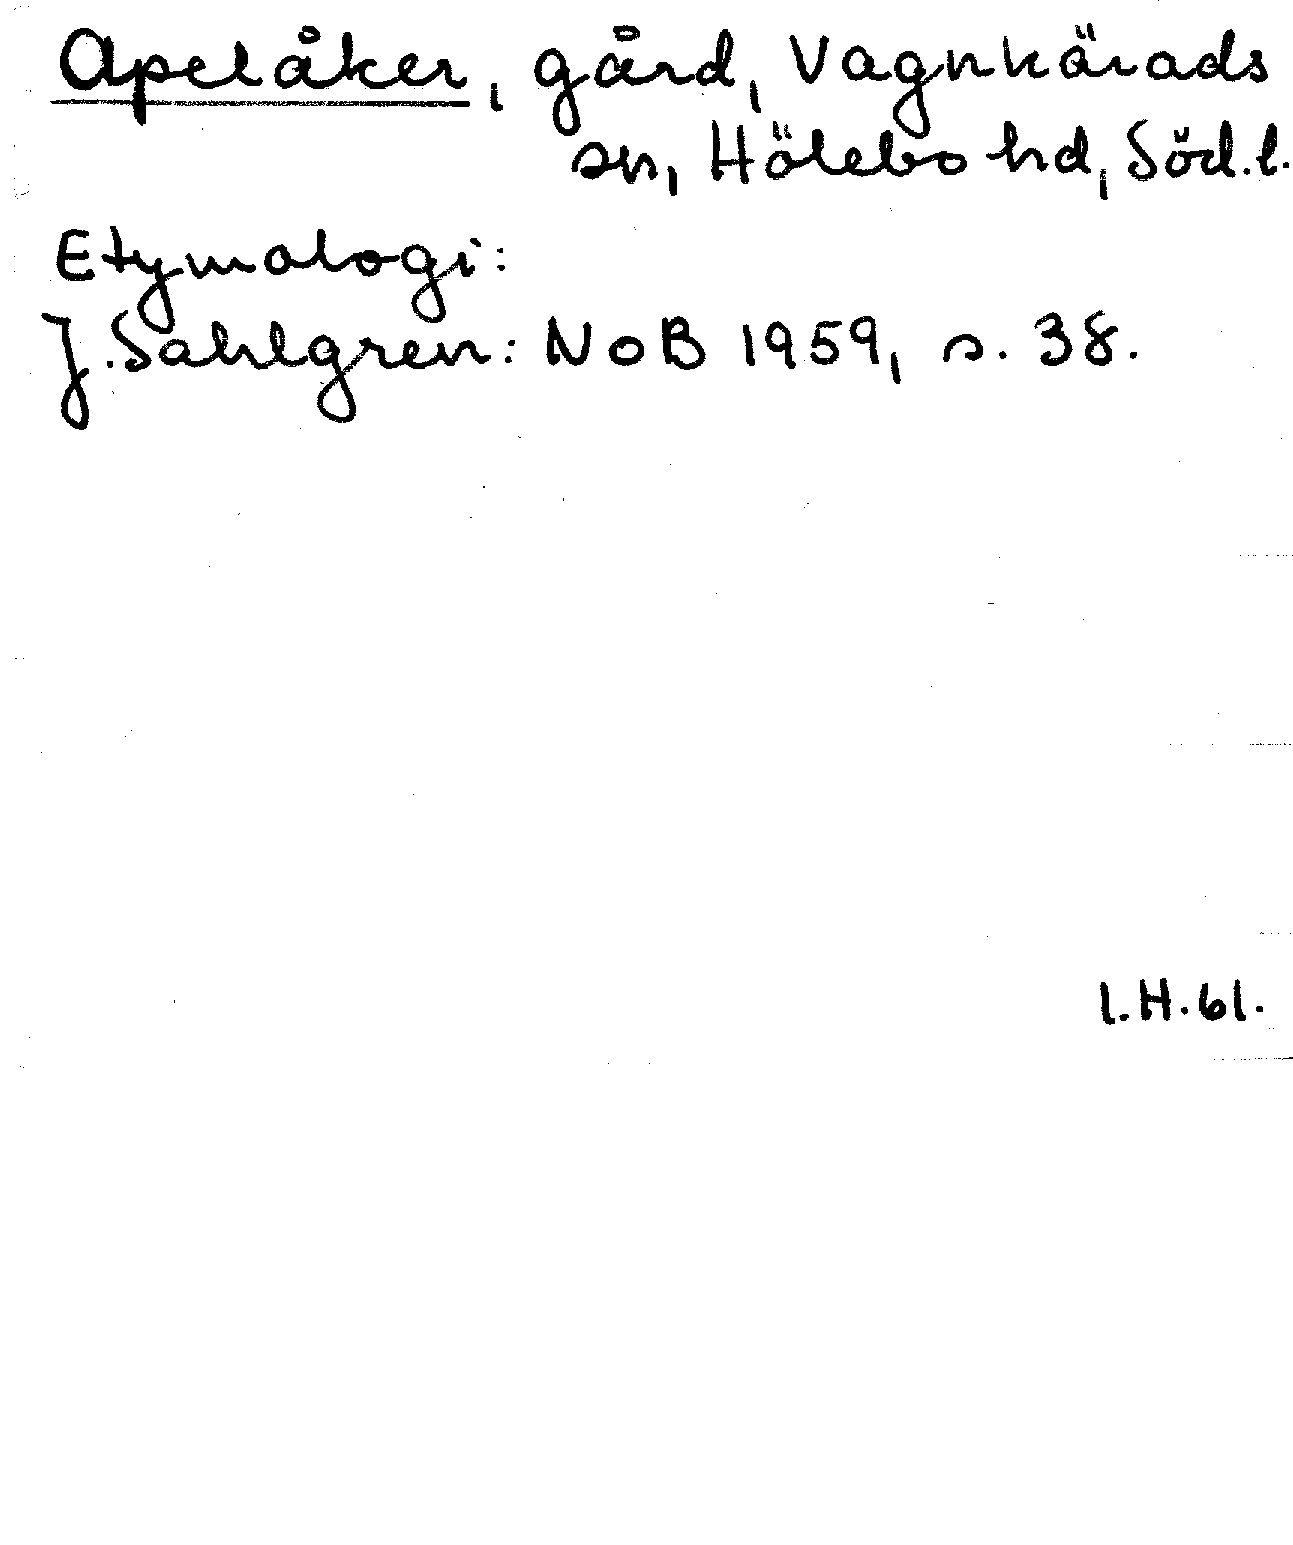 Apelåker, gård, Vagnhärads
sn, Hölebo hd, Söd.l.
Etymologi:
J. Sahlgren: NoB 1959, s. 38.
I.H.61.